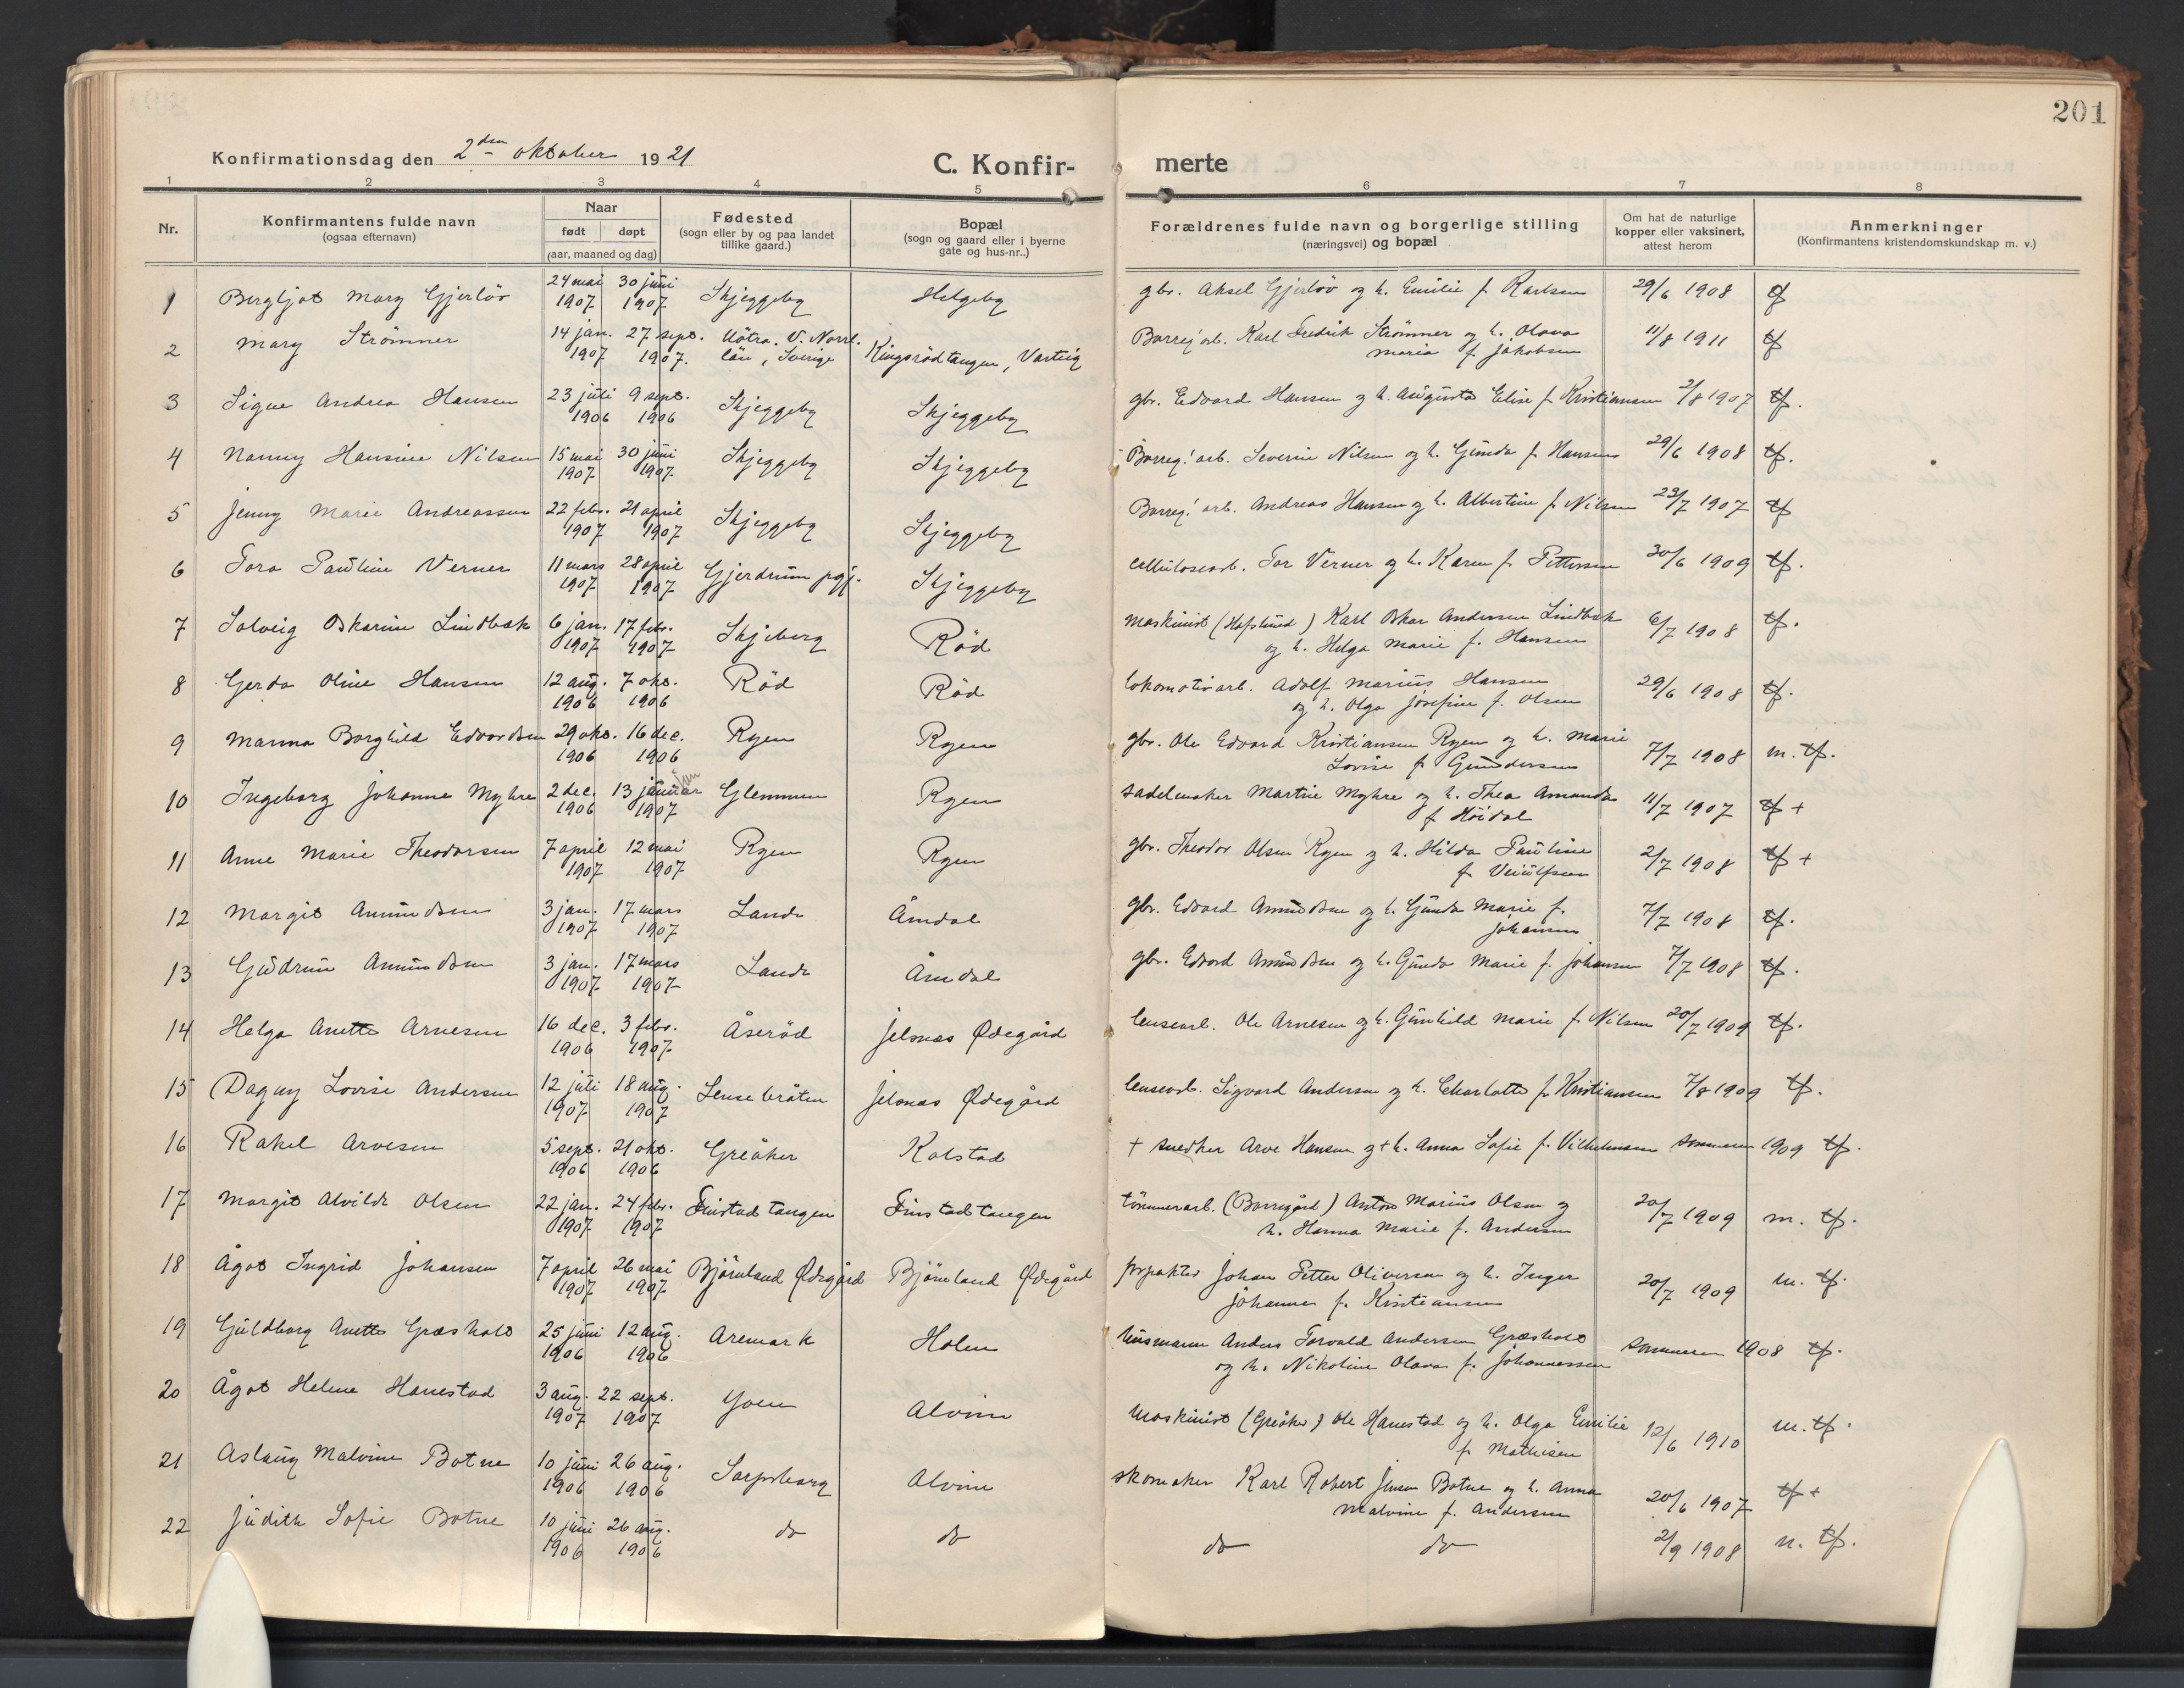 201
Konfirmationsdag den 2den oktober 1921
C. Konfir- merte
1 2 3 4 5 6 7 8
Nr.
Konfirmantens fulde navn
(ogsaa efternavn)
Naar
født døpt
(aar, maaned og dag)
Fødested
(sogn eller by og paa landet
tillike gaard.)
Bopæl
(sogn og gaard eller i byerne
gate og hus-nr..)
Forældrenes fulde navn og borgerlige stilling
(næringsvei) og bopæl
Om hat de naturlige
kopper eller vaksinert,
attest herom
Anmerkninger
(Konfirmantens kristendomskundskap m. v.)
1 Bergljot Mary Gjerløv 24 mai 30 juni Skjeggeby Helgeby gbr. Aksel Gjerløv og h. Emilie f. Karlsen 29/6 1908
1907 1907
2 Mary Strömner 14 jan. 27 sept. V. Norrl. Borreg.' arb. Karl Fredrik Strömner og h. Olava 11/8 1911 tf
1907 1907. län, Sverige Kingsrödtangen, Varteig Maria f. Jakobsen
3 Signe Andrea Hansen 23 juli 9 sept. Skjeggeby Skjeggeby gbr. Edvard Hansen og h. Augusta Elise f. Kristiansen 2/8 1907 tf.
1906 1906
4 Nanny Hansine Nilsen 15 mai 30 juni Skjeggeby Skjeggeby Borreg.' arb. Severin Nilsen og h. Gunda f. Hansen 29/6 1908 tf.
1907 1907
5 Jenny Marie Andreassen 22 febr. 21 april Skjeggeby Skjeggeby Borreg.' arb. Andreas Hansen og h. Albertine f. Nilsen 23/7 1907 tf
1907 1907
6 Tora Pauline Verner 11 mars 28 april Gjerdrum pgj. Skjeggeby cellulosearb. Tor Verner og h. Karen f. Pettersen 30/6 1909 tf.
1907 1907
7 Solveig Oskarine Lindbæk 6 jan. 17 febr. Skjeberg Röd maskinist (Hafslund) Karl Oskar Andersen Lindbæk 6/7 1908 tf.
1907 1907 og h. Helga Marie f. Hansen
8 Gerda Oline Hansen 12 aug. 7 okt. Röd Röd lokomotivarb. Adolf Marius Hansen 29/6 1908 tf.
1906 1906 og h. Olga Josefine f. Olsen
9 Marma Borghild Edvardsen 29 okt. 16 dec. Ryen Ryen gbr. Ole Edvard Kristiansen Ryen og h. Marie 7/7 1908 m. tf.
1906 1906 Lovise f. Gundersen
10 Ingeborg Johanne Myhre 2 dec. 13 januar Glemmen Ryen sadelmaker Martin Myhre og h. Thea Amanda 11/7 1907 tf +
1906 1907 f. Höidal
11 Anne Marie Theodorsen 7 april 12 mai Ryen Ryen gbr. Theodor Olsen Ryen og h. Hilda Pauline 2/7 1908 tf +
1907 1907 f. Veiulfsen
12 Margit Amundsen 3 jan. 17 mars Lande Åmdal gbr. Edvard Amundsen og h. Gunda Marie f. 7/7 1908 tf.
1907 1907 Johansen
13 Gudrun Amundsen 3 jan. 17 mars Lande Åmdal gbr. Edvard Amundsen og h. Gunda Marie f. Johansen 7/7 1908 tf.
1907 1907
14 Helga Anette Arnesen 16 dec. 3 febr. Åseröd Jelsnæs Ødegård lensearb. Ole Arnesen og h. Gunhild Marie f. Nilsen 20/7 1909 tf.
1906 1907
15 Dagny Lovise Andersen 12 juli 18 aug. Lensebråten Jelsnæs Ødegård lensearb. Sigvard Andersen og h. Charlotte f. Kristiansen 7/8 1909 tf.
1907 1907
16 Rakel Arvesen 5 sept. 21 okt. Greåker Kolstad + snedker Arve Hansen og + h. Anna Sofie f. Vilhelmsen sommeren 1909 tf.
1906 1906
17 Margit Alvilde Olsen 22 jan. 24 febr. Finstadtangen Finstadtangen tömmerarb. (Borregård) Anton Marius Olsen og 20/7 1909 m. tf.
1907 1907 h. Hanna Marie f. Andersen
18 Ågot Ingrid Johansen 7 april 26 mai Björnland Ødegård Björnland Ødegård forpakter Johan Petter Oliversen og h. Inger 20/7 1909 m. tf.
1907 1907 Johanne f. Kristiansen
19 Guldborg Anette Græsholt 25 juni 12 aug. Aremark Holen husmann Anders Torvald Andersen Græsholt sommeren 1908 tf.
1906 1906 og h. Nikoline Olava f. Johannessen
20 Ågot Helene Hanestad 3 aug. 22 sept. Moen Alvim maskinist (Greåker) Ole Hanestad og h. Olga Emilie 12/6 1910 m. tf.
1907 1907 f. Mathisen
21 Aslaug Malvine Botne 10 juni 26 aug. Sarpsborg Alvim skomaker Karl Robert Jensen Botne og h. Anna 20/6 1907 tf +
1906 1906 Malvine f. Andersen
22 Judith Sofie Botne 10 juni 26 aug. do do do do 2/9 1908 n. tf.
1906 1906